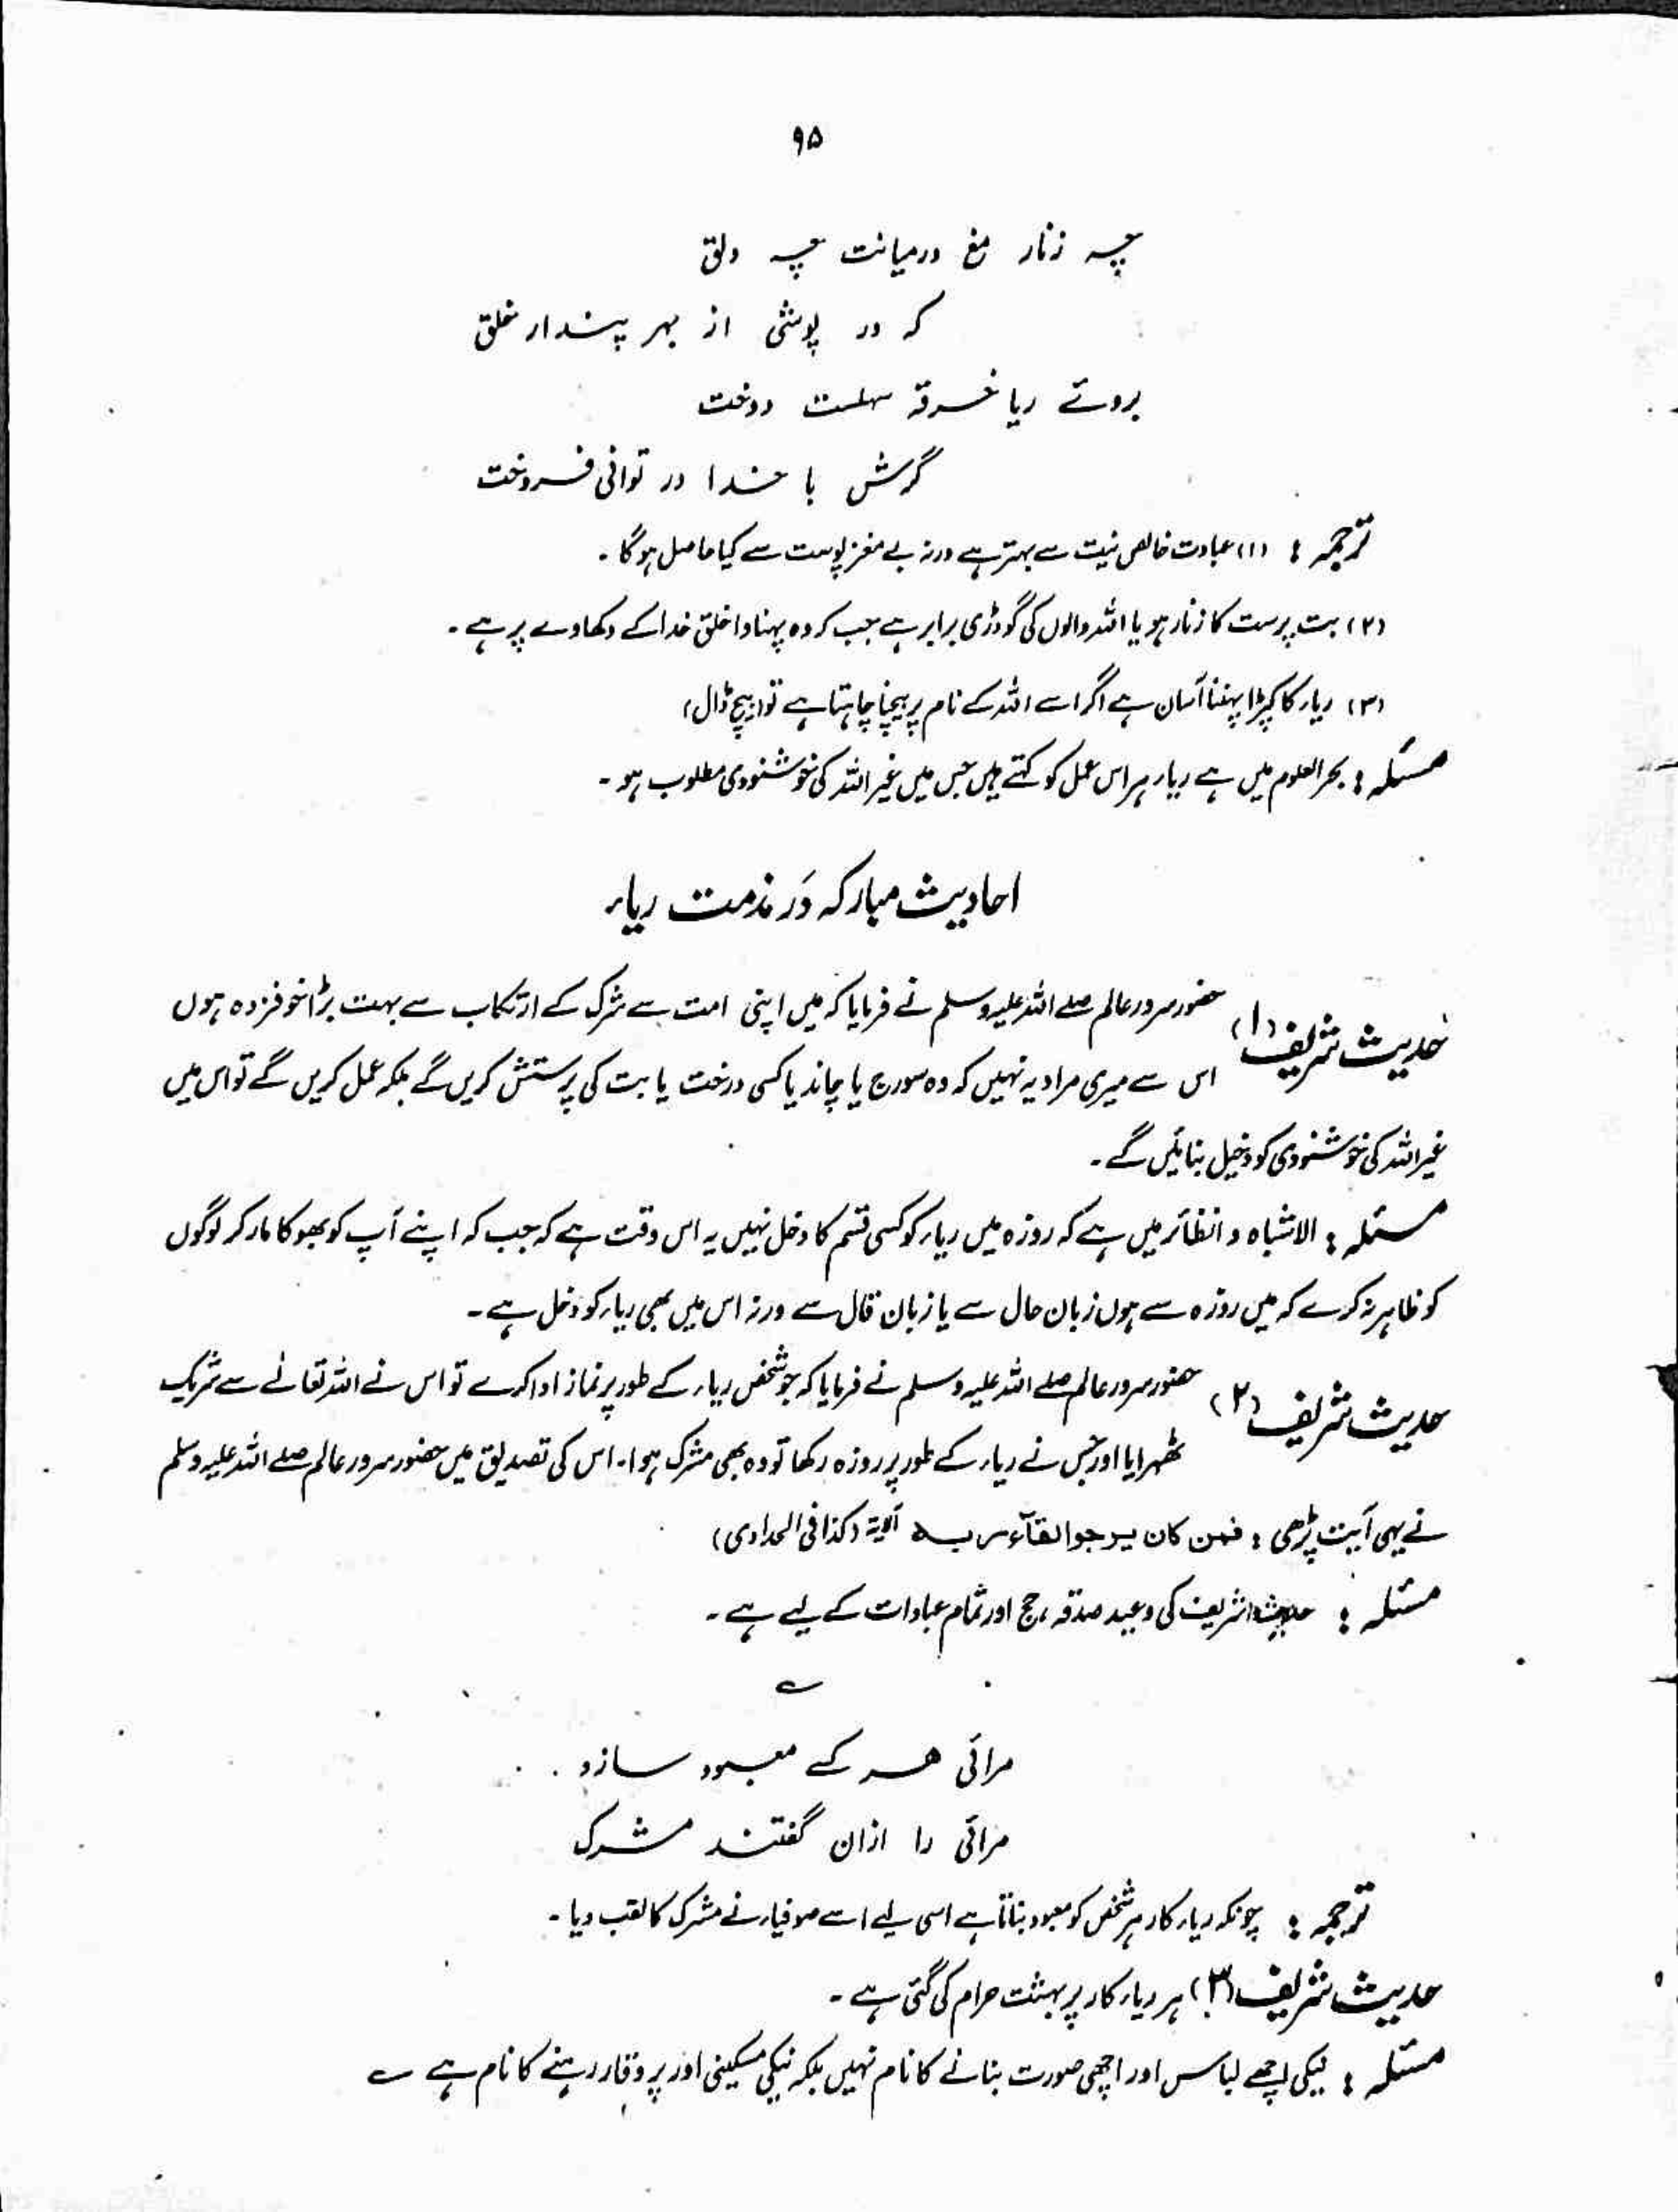 ۹۵
چہ زنار مغ درمیانت چہ دلق
کہ در پوشی از بہر پندار خلق
بروئے ریا خرقہ سہلست دوخت
گرش با خدا در توانی فروخت
ترجمہ : (۱) عبادت خالص نیت سے بہتر ہے ورنہ بے مغز پوست سے کیا حاصل ہوگا ۔
(۲) بت پرست کا زنار ہو یا اللہ والوں کی گودڑی برابر ہے جب کہ وہ پہناوا خلق خدا کے دکھاوے پر ہے ۔
(۳) ریاء کا کپڑا پہننا آسان ہے اگر اسے اللہ کے نام پر بیچنا چاہتا ہے تو بیچ ڈال)
مسئلہ : بحر العلوم میں ہے ریاء ہر اس عمل کو کہتے ہیں جس میں غیر اللہ کی خوشنودی مطلوب ہو ۔
احادیث مبارکہ دَر مذمت ریاء
حدیث شریف (۱) حضور سرور عالم صلے اللہ علیہ وسلم نے فرمایا کہ میں اپنی امت سے شرک کے ارتکاب سے بہت بڑا خوفزدہ ہوں
اس سے میری مراد یہ نہیں کہ وہ سورج یا چاند یا کسی درخت یا بت کی پرستش کریں گے بلکہ عمل کریں گے تو اس میں
غیر اللہ کی خوشنودی کو دخیل بنائیں گے ۔
مسئلہ : الاشباہ و انظائر میں ہے کہ روزہ میں ریاء کو کسی قسم کا دخل نہیں یہ اس وقت ہے کہ جب کہ اپنے آپ کو بھوکا مار کر لوگوں
کو ظاہر نہ کرے کہ میں روزہ سے ہوں زبان حال سے یا زبان قال سے ورنہ اس میں بھی ریاء کو دخل ہے ۔
حدیث شریف (۲) حضور سرور عالم صلے اللہ علیہ وسلم نے فرمایا کہ جو شخص ریاء کے طور پر نماز ادا کرے تو اس نے اللہ تعالےٰ سے شریک
ٹھہرایا اور جس نے ریاء کے طور پر روزہ رکھا تو وہ بھی مشرک ہوا۔ اس کی تصدیق میں حضور سرور عالم صلے اللہ علیہ وسلم
نے یہی آیت پڑھی : فمن کان یرجوا لقآء ربہ اَلآیۃ (کذا فی الحدادی)
مسئلہ : حدیث شریف کی وعید صدقہ ، حج اور تمام عبادات کے لیے ہے ۔
ے
مرائی ہر کسے معبود سازد
مرائی را ازان گفتند مشرک
ترجمہ : چونکہ ریاء کار ہر شخص کو معبود بناتا ہے اسی لیے اسے صوفیاء نے مشرک کا لقب دیا ۔
حدیث شریف (۳) ہر ریاء کار پر بہشت حرام کی گئی ہے ۔
مسئلہ : نیکی اچھے لباس اور اچھی صورت بنانے کا نام نہیں بلکہ نیکی مسکینی اور پر وقار رہنے کا نام ہے ے